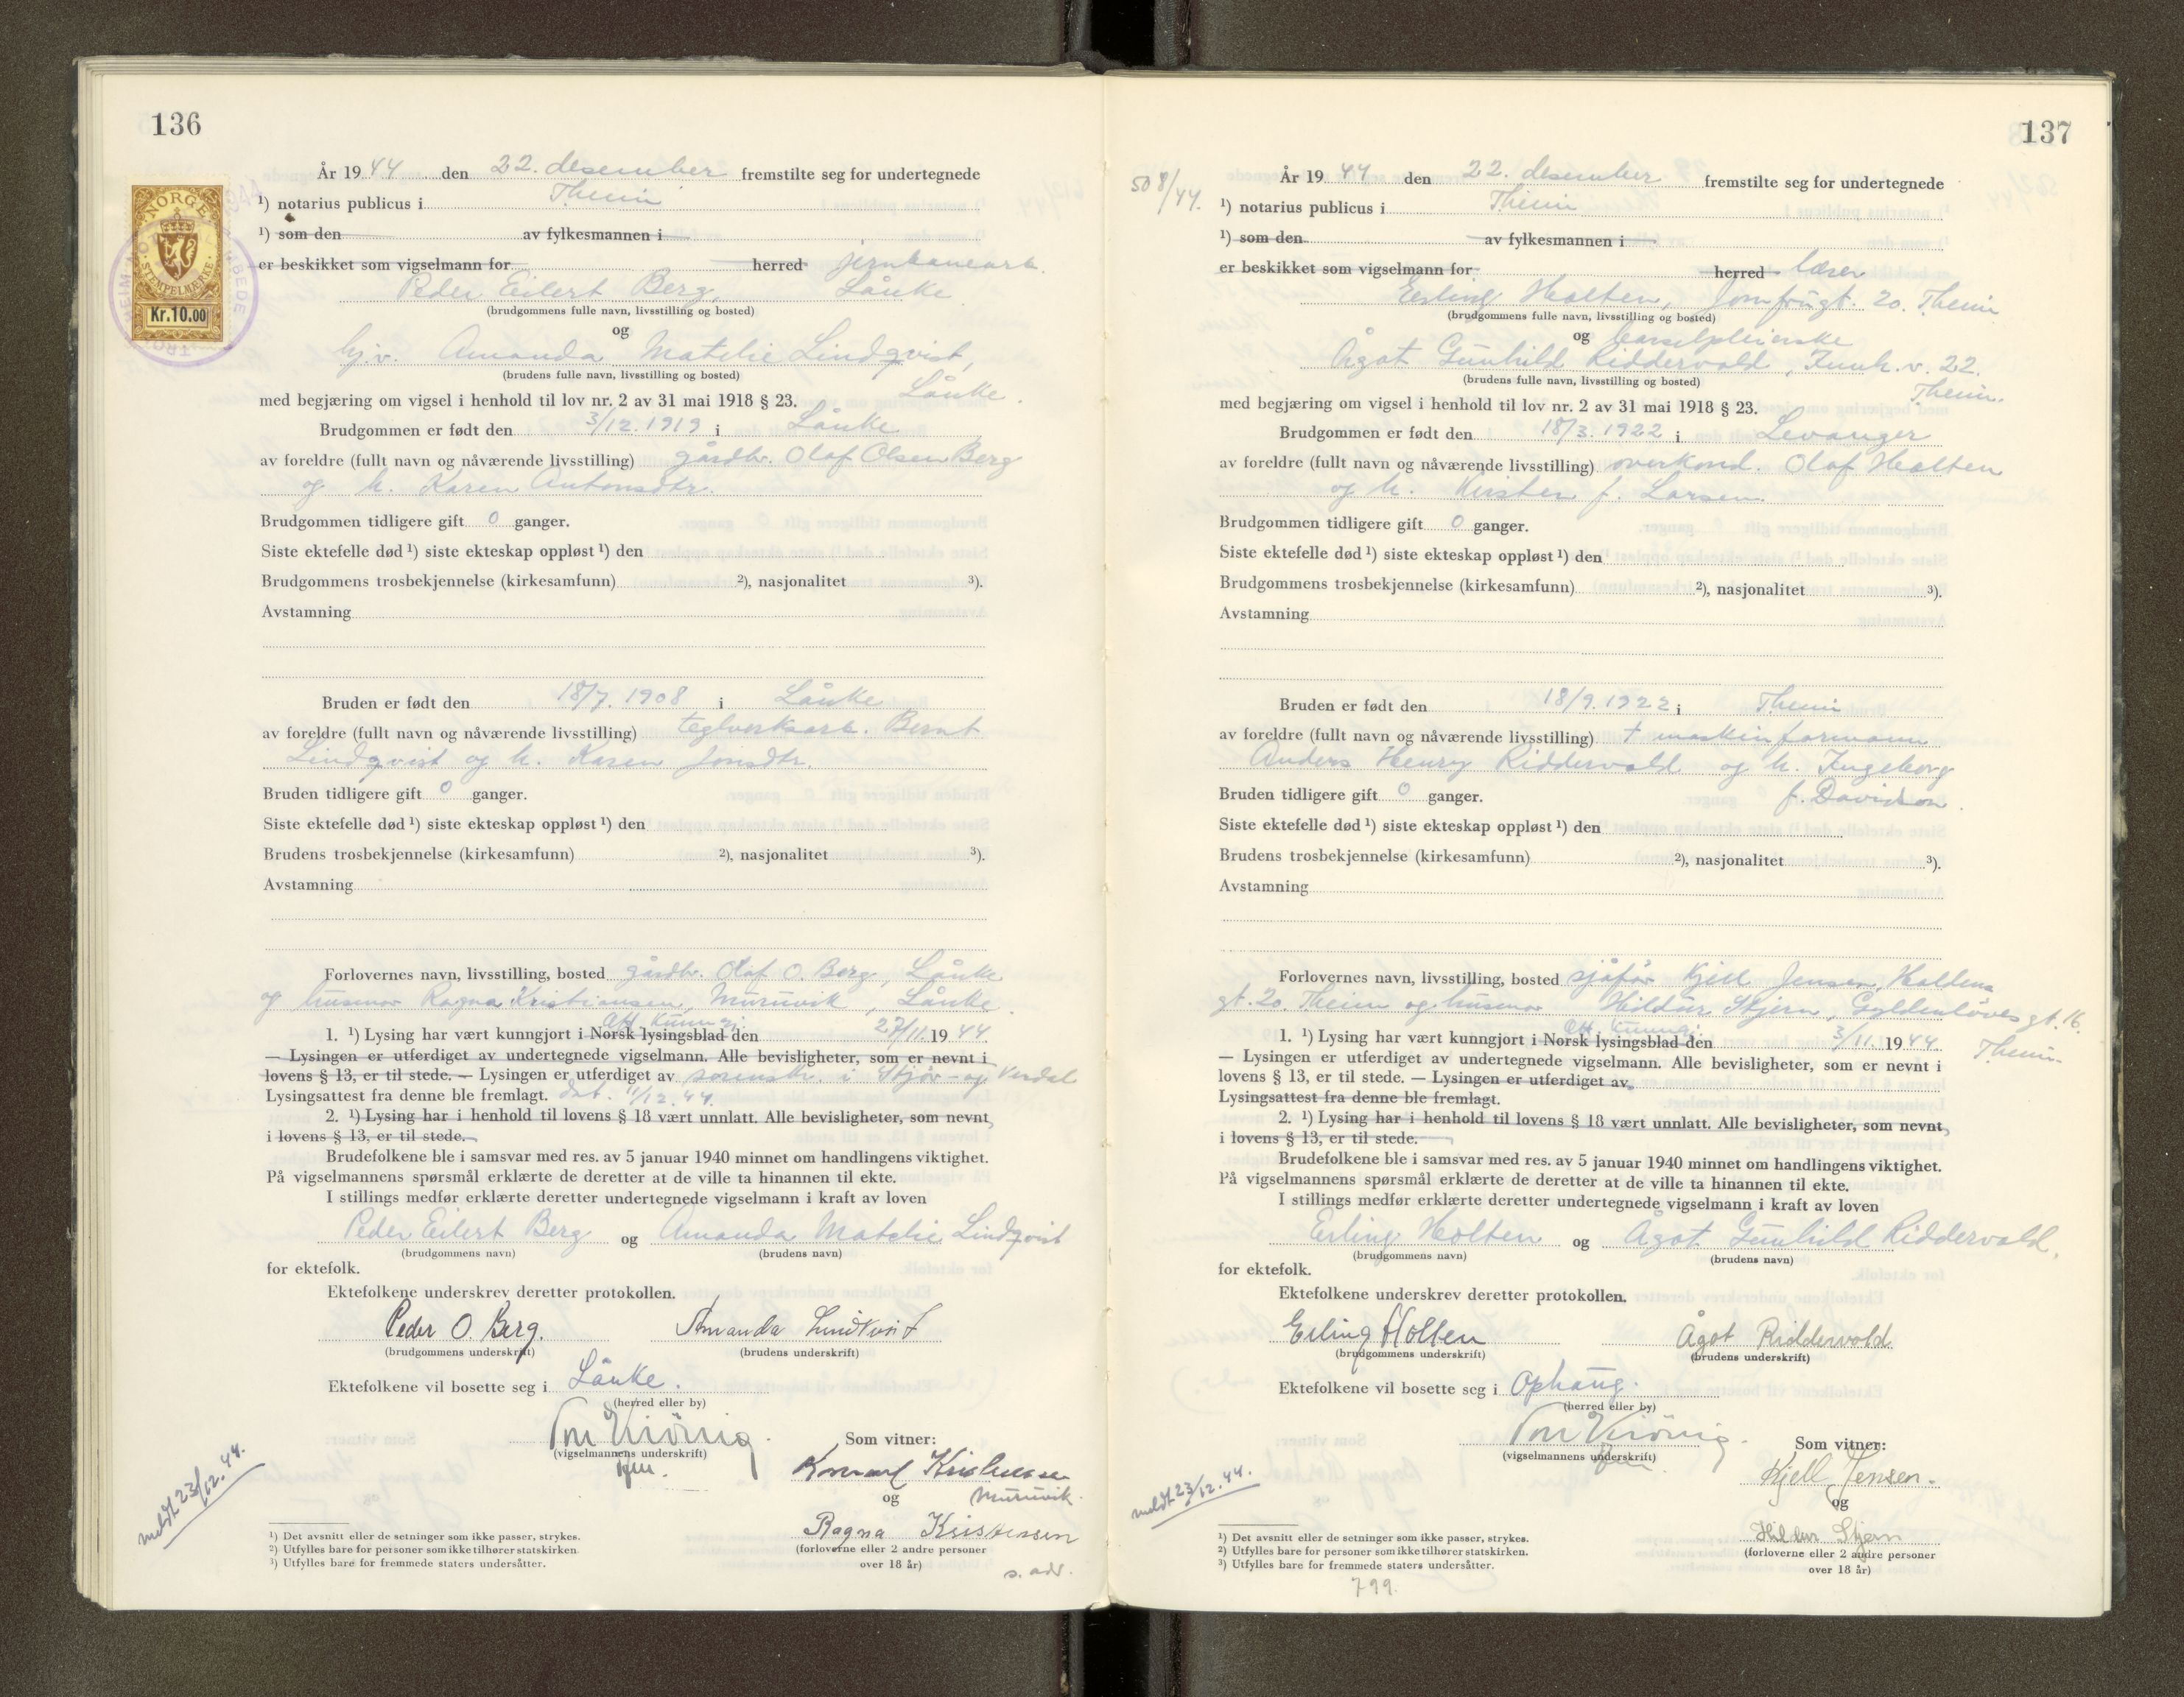 136
NORGE
STEMPELMERKE
Kr. 10.00
År 1944 den 22. desember fremstilte seg for undertegnede
¹) notarius publicus i Theim
¹) som den av fylkesmannen i
er beskikket som vigselmann for herred jernbanearb.
Peder Eilert Berg, Lånke
(brudgommens fulle navn, livsstilling og bosted)
og
hj.v. Amanda Matelie Lindqvist,
(brudens fulle navn, livsstilling og bosted)
Lånke.
med begjæring om vigsel i henhold til lov nr. 2 av 31 mai 1918 § 23.
Brudgommen er født den 3/12. 1919 i Lånke
av foreldre (fullt navn og nåværende livsstilling) gårdbr. Olaf Olsen Berg
og h. Karen Antonsdtr.
Brudgommen tidligere gift 0 ganger.
Siste ektefelle død ¹) siste ekteskap oppløst ¹) den
Brudgommens trosbekjennelse (kirkesamfunn) ²), nasjonalitet ³).
Avstamning
Bruden er født den 18/7. 1908 i Lånke
av foreldre (fullt navn og nåværende livsstilling) teglverksarb. Bernt
Lindqvist og h. Karen Jonsdtr.
Bruden tidligere gift 0 ganger.
Siste ektefelle død ¹) siste ekteskap oppløst ¹) den
Brudens trosbekjennelse (kirkesamfunn) ²), nasjonalitet ³).
Avstamning
Forlovernes navn, livsstilling, bosted gårdbr. Olaf O. Berg, Lånke
og husmor Ragna Kristiansen, Muruvik, Lånke.
Off. Kunngj.
1. ¹) Lysing har vært kunngjort i Norsk lysingsblad den 27/11. 1944.
— Lysingen er utferdiget av undertegnede vigselmann. Alle bevisligheter, som er nevnt i
lovens § 13, er til stede. — Lysingen er utferdiget av sorenskr. i Stjør- og Verdal
Lysingsattest fra denne ble fremlagt. dat. 11/12. 44.
2. ¹) Lysing har i henhold til lovens § 18 vært unnlatt. Alle bevisligheter, som nevnt
i lovens § 13, er til stede.
Brudefolkene ble i samsvar med res. av 5 januar 1940 minnet om handlingens viktighet.
På vigselmannens spørsmål erklærte de deretter at de ville ta hinannen til ekte.
I stillings medfør erklærte deretter undertegnede vigselmann i kraft av loven
Peder Eilert Berg og Amanda Matelie Lindqvist
(brudgommens navn) (brudens navn)
for ektefolk.
Ektefolkene underskrev deretter protokollen.
Peder O. Berg. Amanda Lindkvist
(brudgommens underskrift) (brudens underskrift)
Ektefolkene vil bosette seg i Lånke.
(herred eller by)
(vigselmannens underskrift)
Som vitner:
og Muruvik.
Ragna Kristensen
(forloverne eller 2 andre personer
over 18 år)
s. adr.
meldt 23/12. 44.
¹) Det avsnitt eller de setninger som ikke passer, strykes.
²) Utfylles bare for personer som ikke tilhører statskirken.
³) Utfylles bare for fremmede staters undersåtter.
137
508/44.
År 1944 den 22. desember fremstilte seg for undertegnede
¹) notarius publicus i Theim
¹) som den av fylkesmannen i
er beskikket som vigselmann for herred lærer
Erling Holten, Jomfrugt. 20. Theim
(brudgommens fulle navn, livsstilling og bosted)
og barselpleierske
Ågot Gunhild Riddervold, Innh.v. 22.
(brudens fulle navn, livsstilling og bosted)
Theim.
med begjæring om vigsel i henhold til lov nr. 2 av 31 mai 1918 § 23.
Brudgommen er født den 18/3. 1922 i Levanger
av foreldre (fullt navn og nåværende livsstilling) overkond. Olaf Holten
og h. Kirsten f. Larsen.
Brudgommen tidligere gift 0 ganger.
Siste ektefelle død ¹) siste ekteskap oppløst ¹) den
Brudgommens trosbekjennelse (kirkesamfunn) ²), nasjonalitet ³).
Avstamning
Bruden er født den 18/9. 1922 i Theim
av foreldre (fullt navn og nåværende livsstilling) † maskinformann
Anders Henry Riddervold og h. Ingeborg
Bruden tidligere gift 0 ganger. f. Davidson.
Siste ektefelle død ¹) siste ekteskap oppløst ¹) den
Brudens trosbekjennelse (kirkesamfunn) ²), nasjonalitet ³).
Avstamning
Forlovernes navn, livsstilling, bosted sjåfør Kjell Jensen,
gt. 20. Theim og husmor Hildur Stjern, Gyldenløves gt. 16.
Off. Kunngj.
1. ¹) Lysing har vært kunngjort i Norsk lysingsblad den 3/11. 1944. Theim.
— Lysingen er utferdiget av undertegnede vigselmann. Alle bevisligheter, som er nevnt i
lovens § 13, er til stede. — Lysingen er utferdiget av
Lysingsattest fra denne ble fremlagt.
2. ¹) Lysing har i henhold til lovens § 18 vært unnlatt. Alle bevisligheter, som nevnt
i lovens § 13, er til stede.
Brudefolkene ble i samsvar med res. av 5 januar 1940 minnet om handlingens viktighet.
På vigselmannens spørsmål erklærte de deretter at de ville ta hinannen til ekte.
I stillings medfør erklærte deretter undertegnede vigselmann i kraft av loven
Erling Holten og Ågot Gunhild Riddervold,
(brudgommens navn) (brudens navn)
for ektefolk.
Ektefolkene underskrev deretter protokollen.
Erling Holten Ågot Riddervold
(brudgommens underskrift) (brudens underskrift)
Ektefolkene vil bosette seg i Ophaug.
(herred eller by)
(vigselmannens underskrift)
Som vitner:
Kjell Jensen.
og
Hildur Stjern
(forloverne eller 2 andre personer
over 18 år)
meldt 23/12. 44.
¹) Det avsnitt eller de setninger som ikke passer, strykes.
²) Utfylles bare for personer som ikke tilhører statskirken.
³) Utfylles bare for fremmede staters undersåtter.
799.